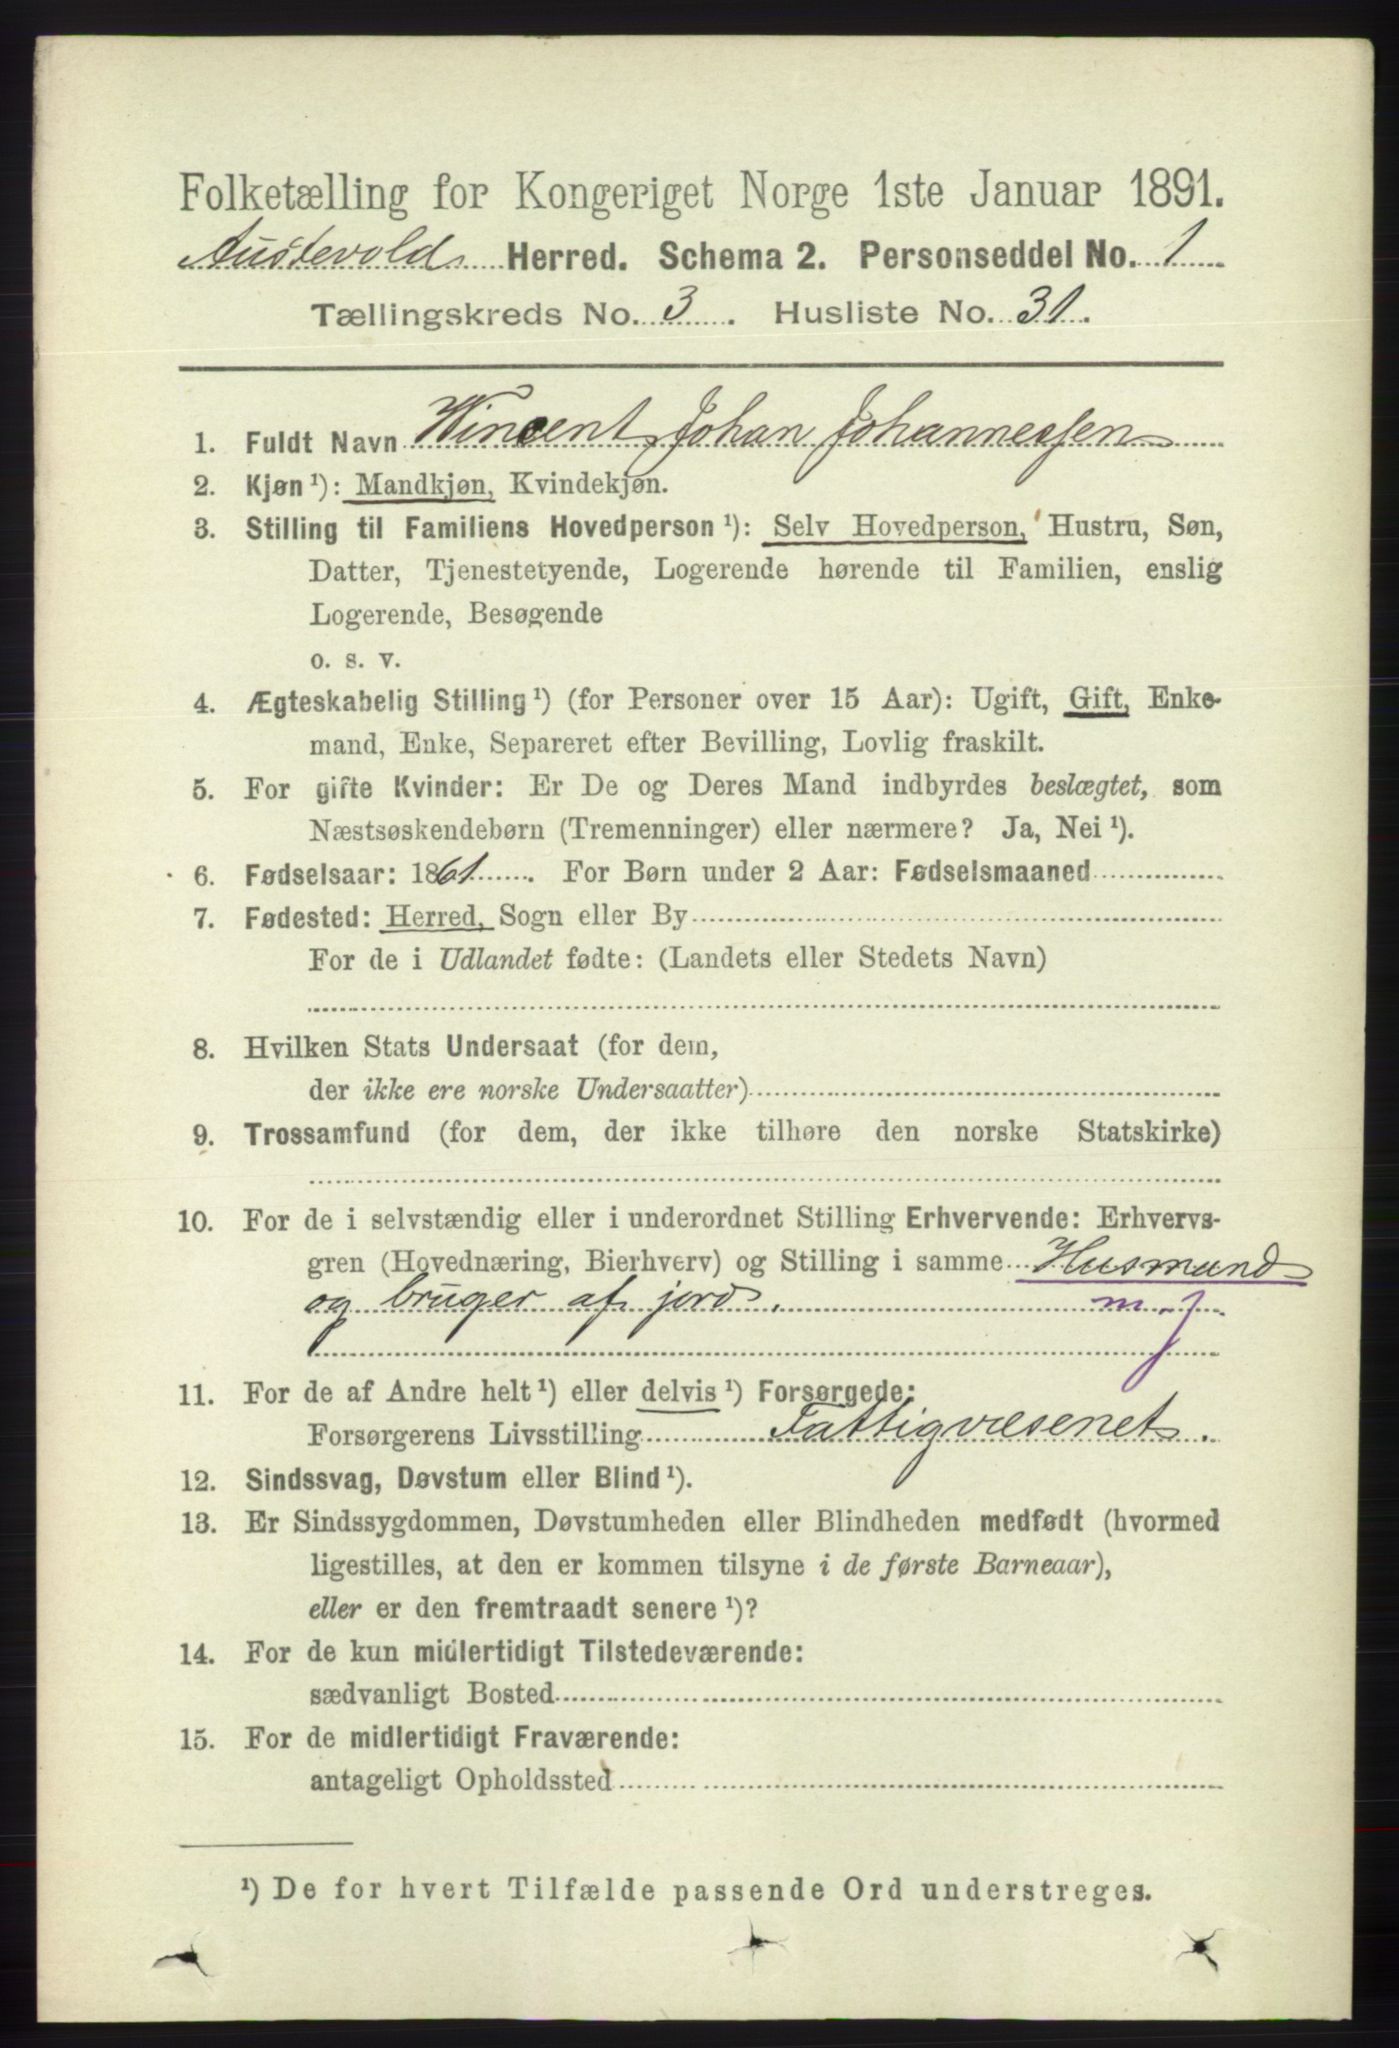 Folketælling for Kongeriget Norge 1ste Januar 1891.
Austevold Herred. Schema 2. Personseddel No. 1
Tællingskreds No. 3. Husliste No. 31.
1. Fuldt Navn Wincent Johan Johannessen
2. Kjøn ¹): Mandkjøn, Kvindekjøn.
3. Stilling til Familiens Hovedperson ¹): Selv Hovedperson, Hustru, Søn,
Datter, Tjenestetyende, Logerende hørende til Familien, enslig
Logerende, Besøgende
o. s. v.
4. Ægteskabelig Stilling ¹) (for Personer over 15 Aar): Ugift, Gift, Enke-
mand, Enke, Separeret efter Bevilling, Lovlig fraskilt.
5. For gifte Kvinder: Er De og Deres Mand indbyrdes beslægtet, som
Næstsøskendebørn (Tremenninger) eller nærmere? Ja, Nei ¹).
6. Fødselsaar: 1861. For Børn under 2 Aar: Fødselsmaaned
7. Fødested: Herred, Sogn eller By
For de i Udlandet fødte: (Landets eller Stedets Navn)
8. Hvilken Stats Undersaat (for dem,
der ikke ere norske Undersaatter)
9. Trossamfund (for dem, der ikke tilhøre den norske Statskirke)
10. For de i selvstændig eller i underordnet Stilling Erhvervende: Erhvervs-
gren (Hovednæring, Bierhverv) og Stilling i samme Husmand
og bruger af jord. m. j.
11. For de af Andre helt ¹) eller delvis ¹) Forsørgede:
Forsørgerens Livsstilling Fattigvæsenet.
12. Sindssvag, Døvstum eller Blind ¹).
13. Er Sindssygdommen, Døvstumheden eller Blindheden medfødt (hvormed
ligestilles, at den er kommen tilsyne i de første Barneaar),
eller er den fremtraadt senere ¹)?
14. For de kun midlertidigt Tilstedeværende:
sædvanligt Bosted
15. For de midlertidigt Fraværende:
antageligt Opholdssted
¹) De for hvert Tilfælde passende Ord understreges.